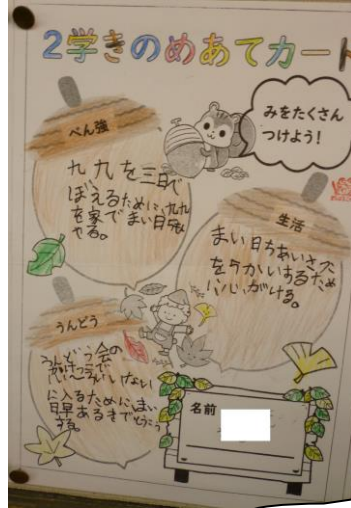 2学きのめあてカード
みをたくさん
つけよう!
べん強
九九を三日で
ぼえるために、九九
を家でまい日
やる。
生活
まい日ちあいさつ
をうかいするため
心がける。
うんどう
うんどう会の
ない
に入るために、まい
日早あるきで
する。
名前